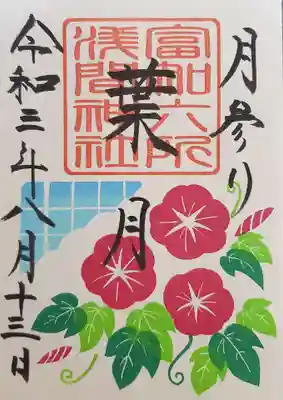 月参り
富知六所
淺間神社
葉月
令和三年八月十三日